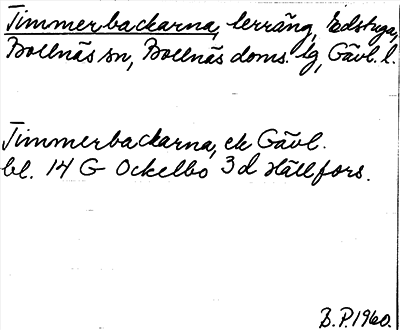 Timmerbackarna, terräng, Edstuga,
Bollnäs sn, Bollnäs doms. lg, Gävl. l.
Timmerbackarna, ek Gävl.
bl. 14 G Ockelbo 3d Hällfors.
B.P. 1960.